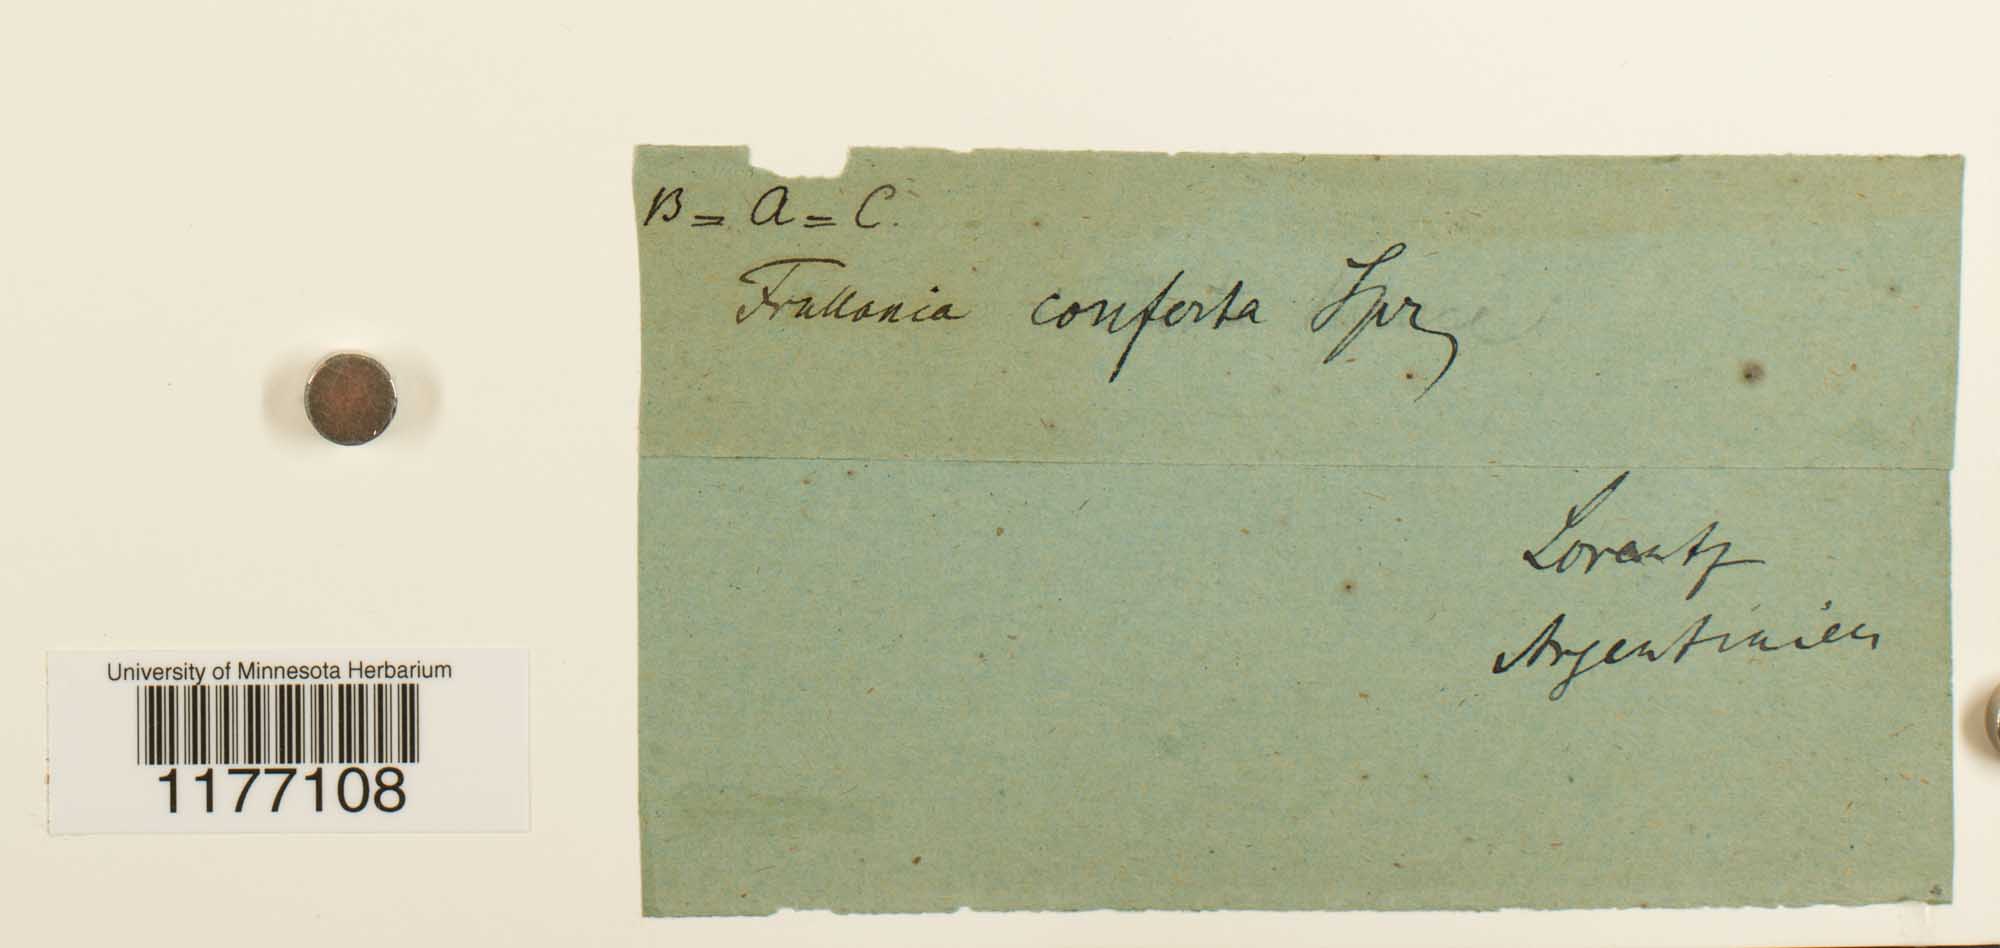 B = A = C.
Frullania conferta Spr
Lorentz
Argentinien
University of Minnesota Herbarium
1177108